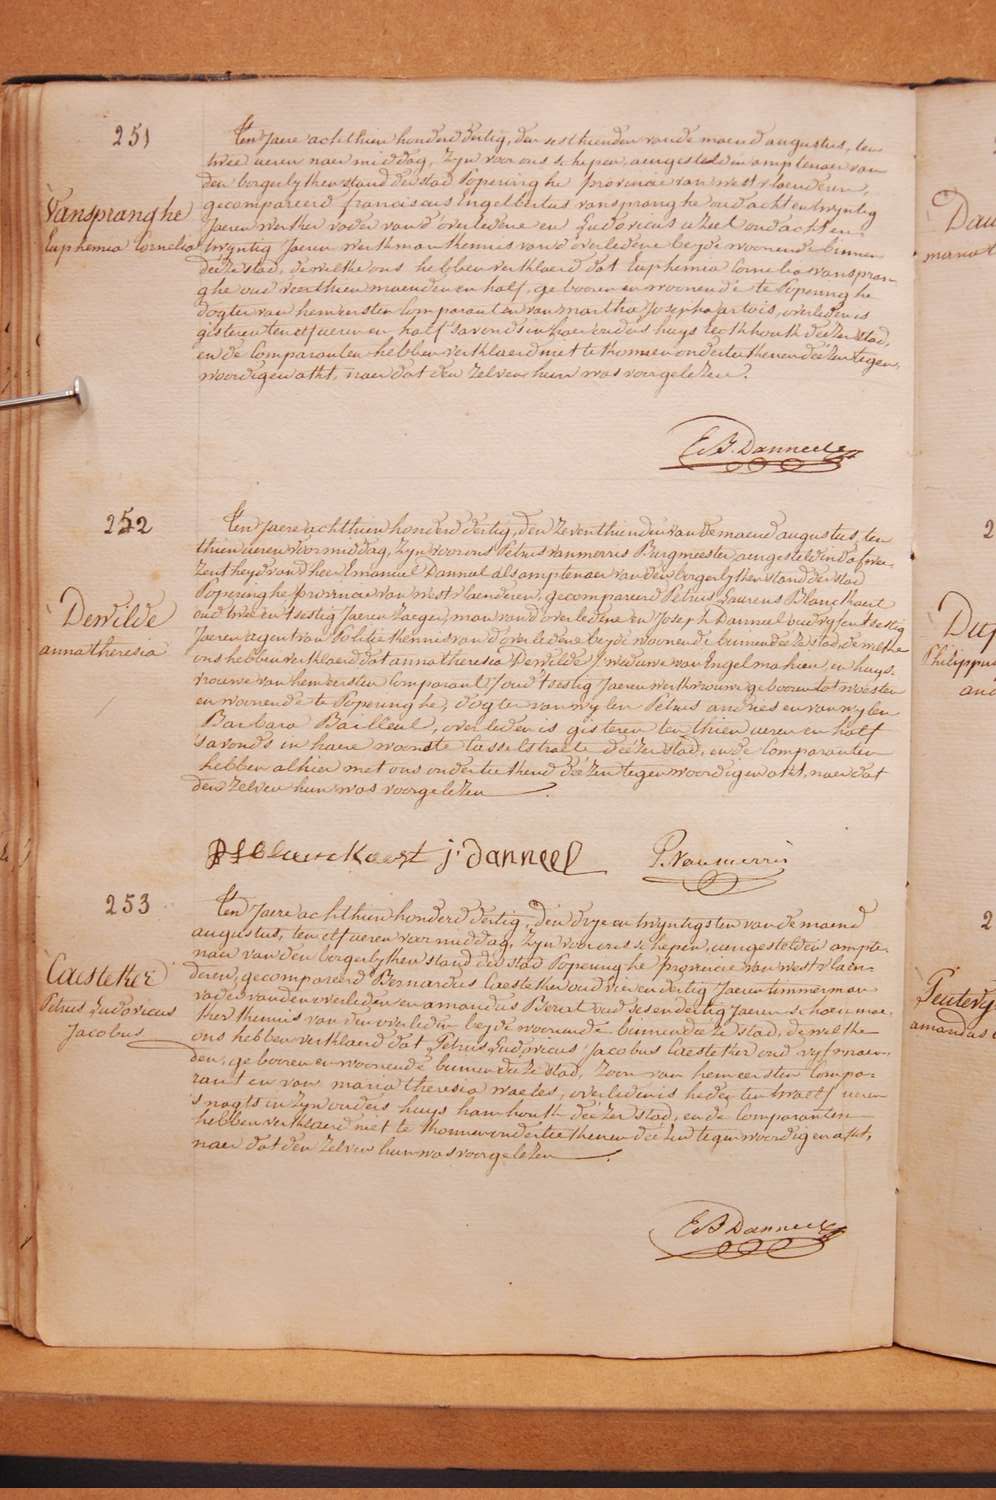 251
Vanspranghe
Euphemia Cornelia
Ten Jaere achthien honderd dertig, den sesthienden van de maend augustus, ten
twee ueren naer middag, Zyn voor ons schepen, aengesteld in amptenaer van
den borgerlyken stand der stad Poperinghe provincie van westvlaenderen,
gecompareerd franciscus Engelbertus vanspranghe oud acht en twyntig
Jaeren werker vader van d'overledene en Ludovicus oud acht en
twyntig Jaeren, werkman kennis van d'overledene beyde woonende binnen
deeze stad, dewelke ons hebben verklaerd dat Euphemia Cornelia vanspran-
ghe oud veerthien maenden en half, gebooren en woonende te Poperinghe
dogter van hem eersten Comparant en van martha Josepha artois, overleden is
gisteren ten elf ueren en half s'avonds in haer ouders huys deezer stad,
en de Comparanten hebben verklaerd niet te konnen onderteekenen deezen tegen-
woordigen akt, naer dat den Zelven hun was voorgelezen.
E. B. Danneel
252
Dewilde
anna theresia
Ten Jaere achthien honderd dertig, den Zeventhienden van de maend augustus, ten
thien ueren voormiddag, Zyn voor ons Petrus vanmerris Burgmeester aengesteld in d'afwe-
zentheyd van d'heer Emanuel Danneel als amptenaer van den borgerlyken stand der stad
Poperinghe provincie van westvlaenderen, gecompareerd Petrus Laurens Blanckaert
oud twee en tsestig Jaeren Zaeger, man van d'overledene en Joseph Danneel oud vyf en tsestig
Jaeren agent van Politie kennis van d'overledene beyde woonende binnen deeze stad, dewelke
ons hebben verklaerd dat anna theresia Dewilde, weduwe van Engel mahieu, en huys-
vrouwe van hem eersten Comparant, oud tsestig Jaeren werkvrouwe gebooren tot woesten
en woonende te Poperinghe, dogter van wylen Petrus andries en van wylen
Barbara Bailleul, overleden is gisteren ten thien ueren en half
s'avonds in haere woonste Casselstraete deezer stad, en de Comparanten
hebben alhier met ons onderteekend deezen tegenwoordigen akt, naer dat
den Zelven hun was voorgelezen
Blanckaert j. danneel P. Vanmerris
253
Caesteker
Petrus Ludovicus
Jacobus
Ten Jaere achthien honderd dertig, den drye en twyntigsten van de maend
augustus, ten elf ueren voormiddag, Zyn voor ons schepen, aengestelden ampte-
naer van den borgerlyken stand der stad Poperinghe provincie van westvlaen-
deren, gecompareerd Bernardus Caesteker oud vier en dertig Jaeren timmerman
vader van den overleden en amandus oud ses en dertig Jaeren schoenmae-
ker kennis van den overleden beyde woonende binnen deeze stad, dewelke
ons hebben verklaerd dat Petrus Ludovicus Jacobus Caesteker oud vyf maen-
den, gebooren en woonende binnen deeze stad, Zoon van hem eersten Compa-
rant en van maria theresia waeles, overleden is heden ten twaelf ueren
s'nagts in Zyn ouders huys deezer stad, en de Comparanten
hebben verklaerd niet te konnen onderteekenen deezen tegenwoordigen akt,
naer dat den Zelven hun was voorgelezen
E. B. Danneel